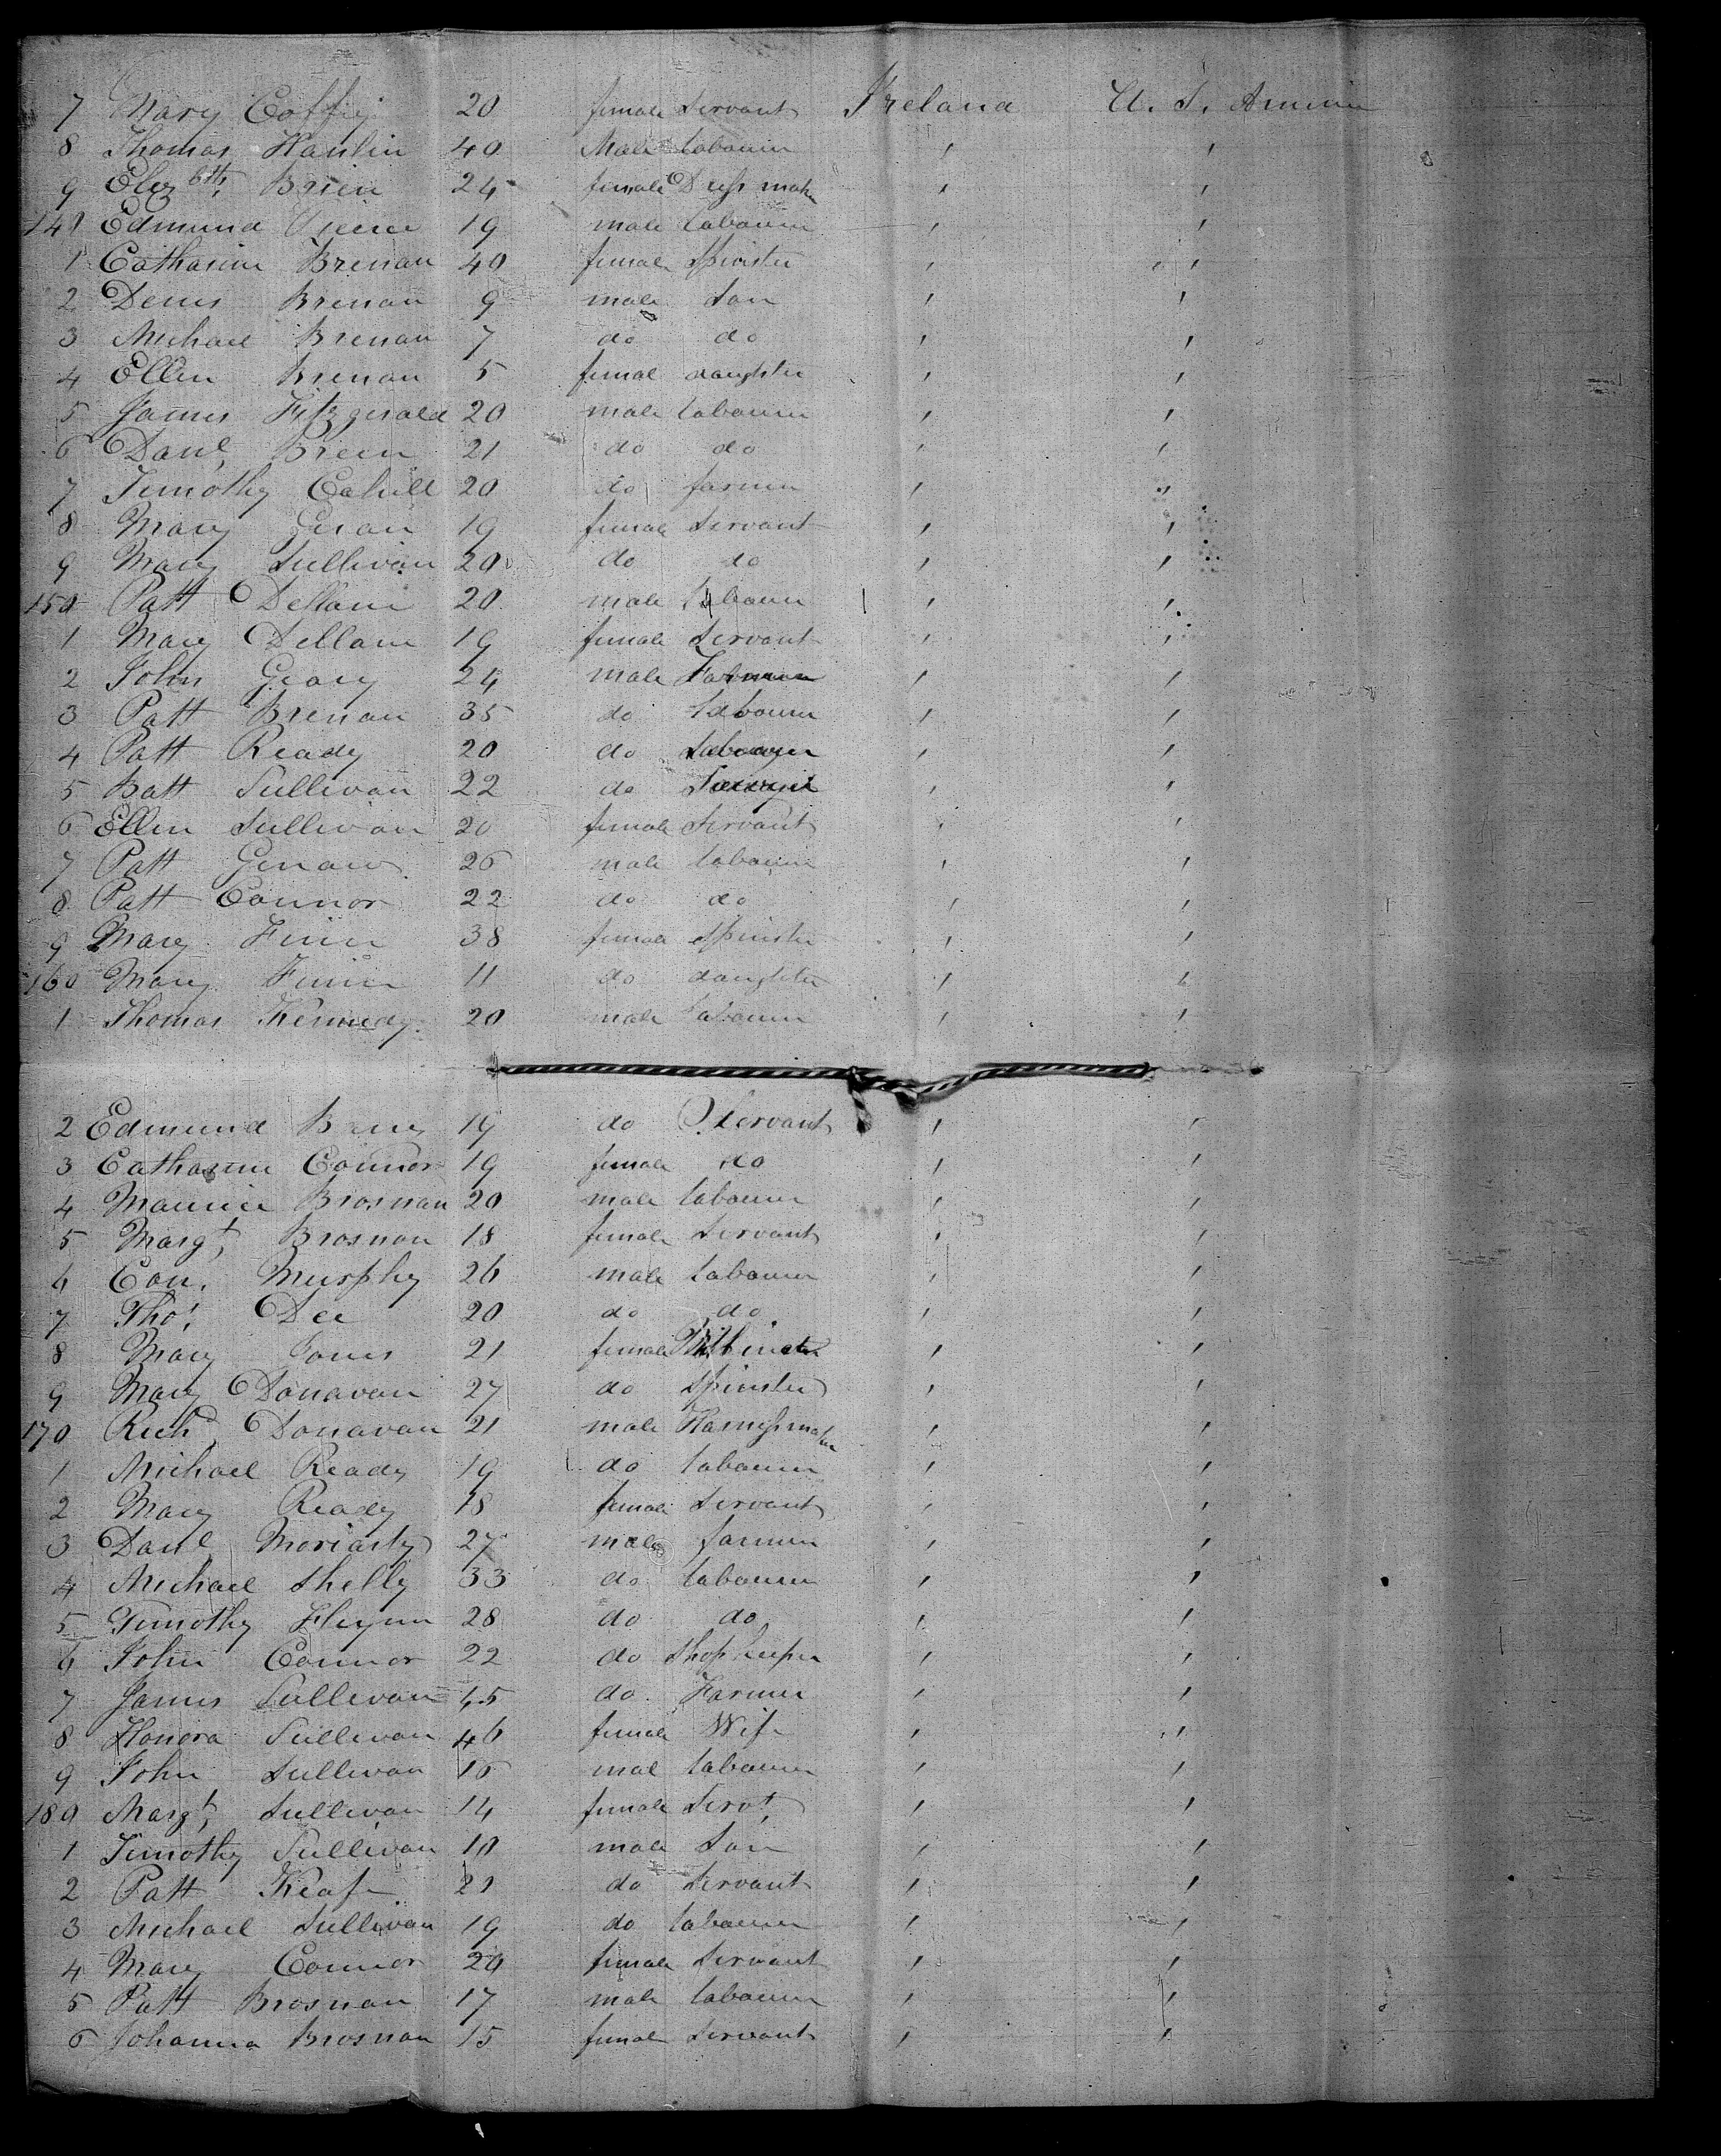 7 Mary Coffey 20 female Servant Ireland U. S. America
8 Thomas Hanlin 40 Male labourer ' '
9 Elizbth, Brien 24 female Dress maker ' '
140 Edmund 19 male labourer ' '
1 Catharine Brenan 40 female Spinster ' '
2 Denis Brenan 9 male Son ' '
3 Michael Brenan 7 do do ' '
4 Ellen Brenan 5 femal daughter ' '
5 James Fitzgerald 20 male labourer ' '
6 Danl, Breen 21 do do ' '
7 Timothy Cahill 20 do farmer ' '
8 Mary 19 female Servant ' '
9 Mary Sullivan 20 do do ' '
150 Patt Dellane 20 male labourer ' '
1 Mary Dellane 19 female Servant ' '
2 John Geary 24 male ' '
3 Patt Brenan 35 do labourer ' '
4 Patt Ready 20 do labourer ' '
5 Batt Sullivan 22 do ' '
6 Ellen Sullivan 20 female Servant ' '
7 Patt 26 male labourer ' '
8 Patt Connor 22 do do ' '
9 Mary 38 female Spinster ' '
160 Mary 11 do daughter ' '
1 Thomas Kennedy 20 male labourer ' '
2 Edmund 19 do Servant ' '
3 Catharine Connor 19 female do ' '
4 Maurice Brosnan 20 male labourer ' '
5 Margt, Brosnan 18 female Servant ' '
6 Con. Murphy 26 male labourer ' '
7 Thos. Dee 20 do do ' '
8 Mary Jones 21 female ' '
9 Mary Donavan 27 do Spinster ' '
170 Richd, Donavan 21 male Harnessmaker ' '
1 Michael Ready 19 do labourer ' '
2 Mary Ready 18 female Servant ' '
3 Danl, Moriarty 27 male farmer ' '
4 Michael Shelly 33 do labourer ' '
5 Timothy Flynn 28 do do ' '
6 John Connor 22 do Shop keeper ' '
7 James Sullivan 45 do Farmer ' '
8 Honora Sullivan 46 female Wife ' '
9 John Sullivan 16 mal labourer ' '
180 Margt, Sullivan 14 female Servt, ' '
1 Timothy Sullivan 10 male Son ' '
2 Patt Keafe 21 do Servant ' '
3 Michael Sullivan 19 do labourer ' '
4 Mary Connor 20 female Servant ' '
5 Patt Brosnan 17 male labourer ' '
6 Johanna Brosnan 15 female Servant ' '